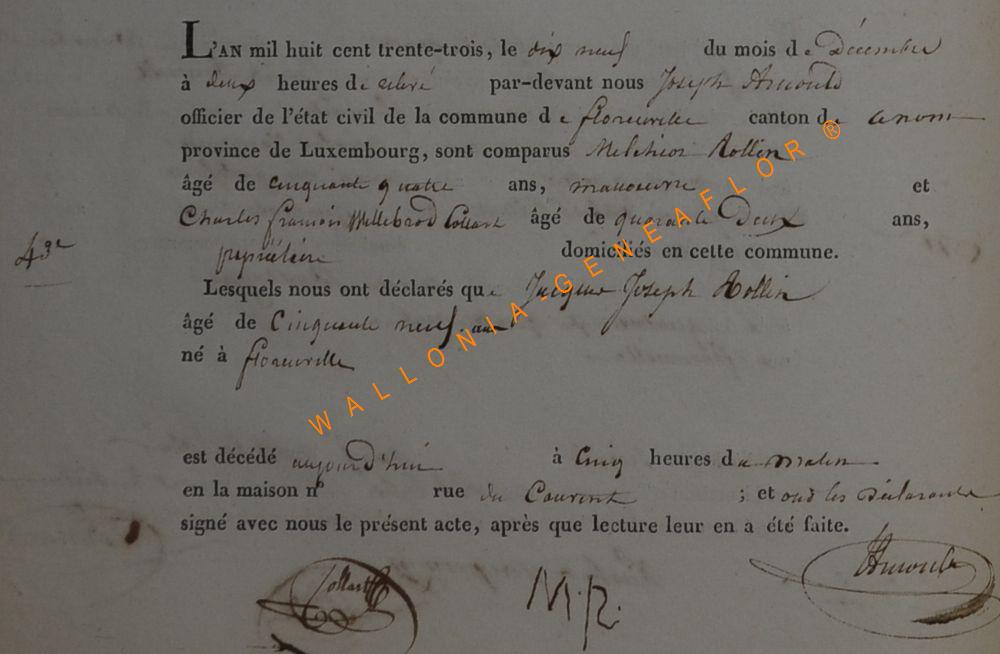 L'AN mil huit cent trente-trois, le dix neuf du mois de Décembre
à deux heures de relevé par-devant nous Joseph Arnould
officier de l'état civil de la commune de florenville canton de
province de Luxembourg, sont comparus Melchior Rollin
âgé de cinquante quatre ans, manoeuvre et
Charles françois Willebrod Collart âgé de quarante Deux ans,
43e
propriétaire domiciliés en cette commune.
Lesquels nous ont déclarés que Jacques Joseph Rollin
âgé de Cinquante neuf ans
né à florenville
est décédé aujourd'hui à Cinq heures du matin
en la maison nº rue du Couvent ; et ont les déclarants
signé avec nous le présent acte, après que lecture leur en a été faite.
Collart M.R. Arnould
WALLONIA-GENEAFLOR ®